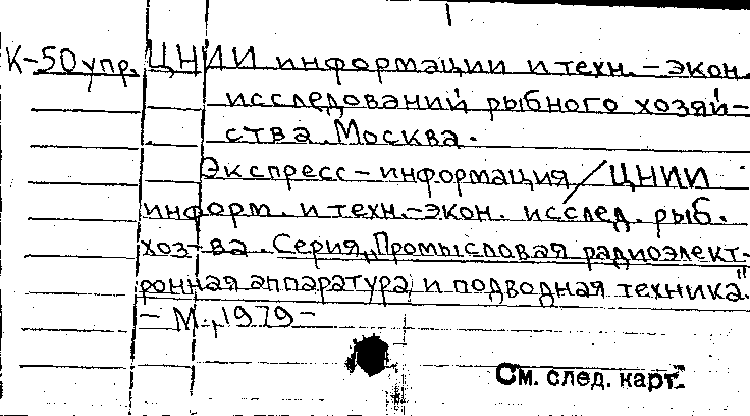 К-50 упр. ЦНИИ информации и техн.-экон.
исследований рыбного хозяй-
ства. Москва.
Экспресс-информация/ЦНИИ
информ. и техн.-экон. исслед. рыб.
хоз-ва. Серия „Промысловая радиоэлект-
ронная аппаратура и подводная техника".
- М., 1979-
См. след. карт.